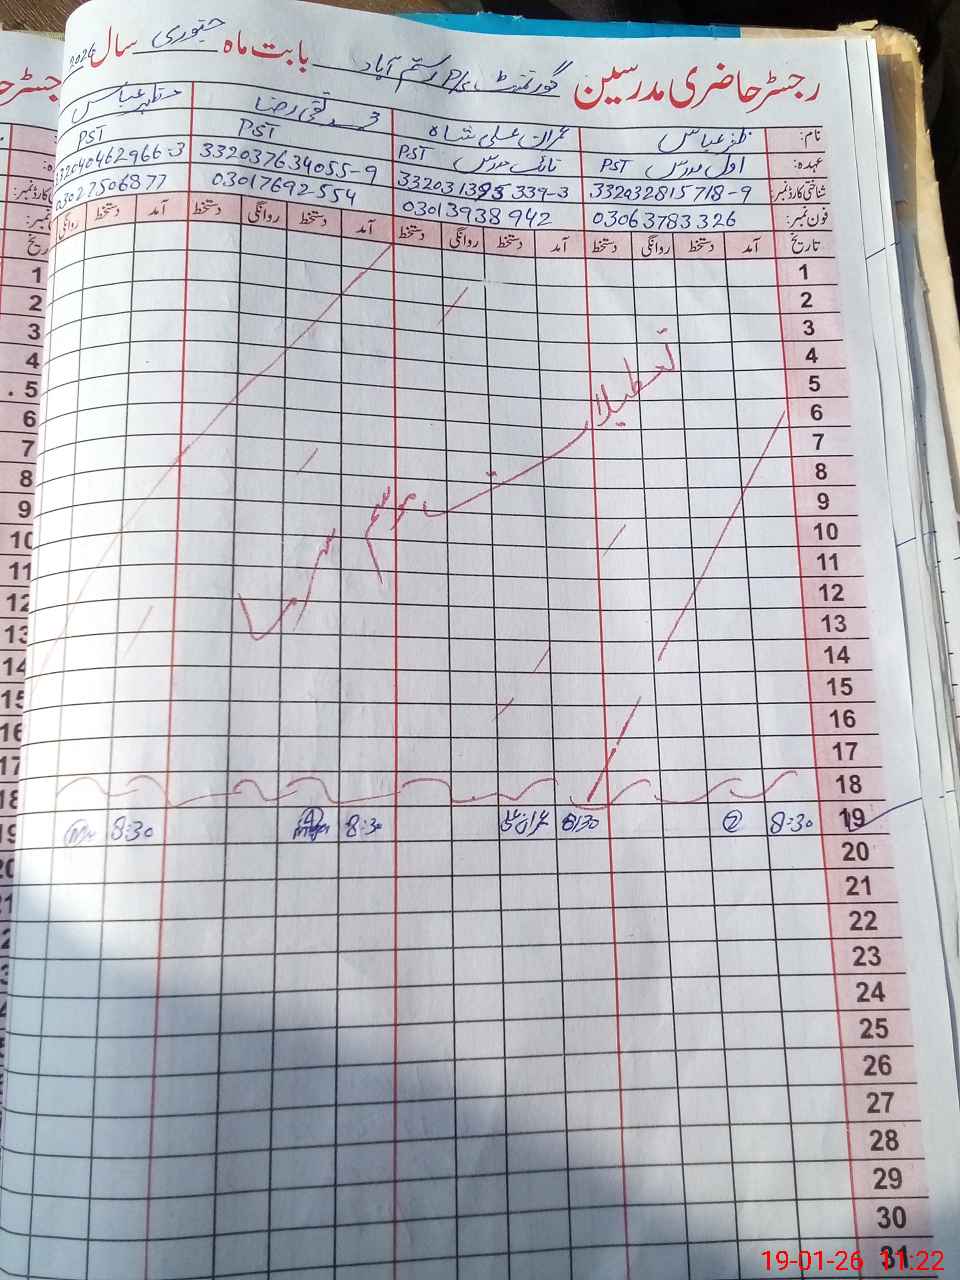 رجسٹر حاضری مدرسین گورنمنٹ P/S رستم آباد بابت ماہ جنوری سال 2026
نام: ظفر عباس عمران علی شاہ تقی رضا مظہر عباس
عہدہ: اول مدرس PST نائب مدرس PST PST PST
شناختی کارڈ نمبر: 332032815718-9 332031395339-3 332037634055-9 332040462966-3
فون نمبر: 03063783326 03013938942 03017692554 03027506877
تاریخ آمد دستخط روانگی دستخط آمد دستخط روانگی دستخط آمد دستخط روانگی دستخط آمد دستخط روانگی
1
2
3
4
5
6
7
8
9
10
11
12
13
14
15
16
17
18
تعطیلات موسم سرما
19 8:30 8:30 8:30 8:30
20
21
22
23
24
25
26
27
28
29
30
31
19-01-26 11:22